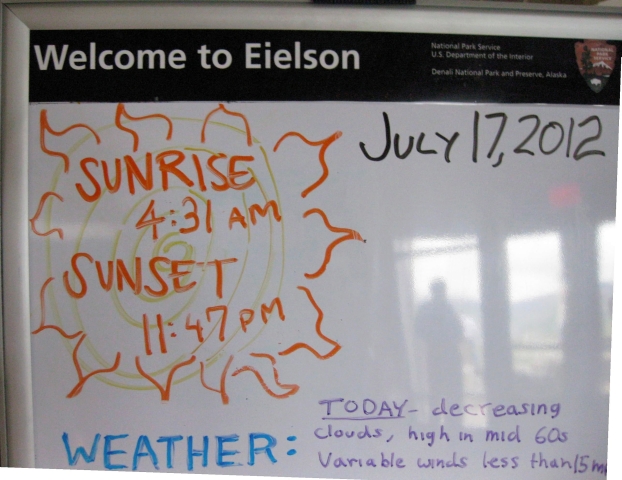 Welcome to Eielson
National Park Service
U.S. Department of the Interior
Denali National Park and Preserve, Alaska
NATIONAL
PARK
SERVICE
JULY 17, 2012
SUNRISE
4:31 AM
SUNSET
11:47 PM
WEATHER:
TODAY- decreasing
clouds, high in mid 60s
Variable winds less than 15 m